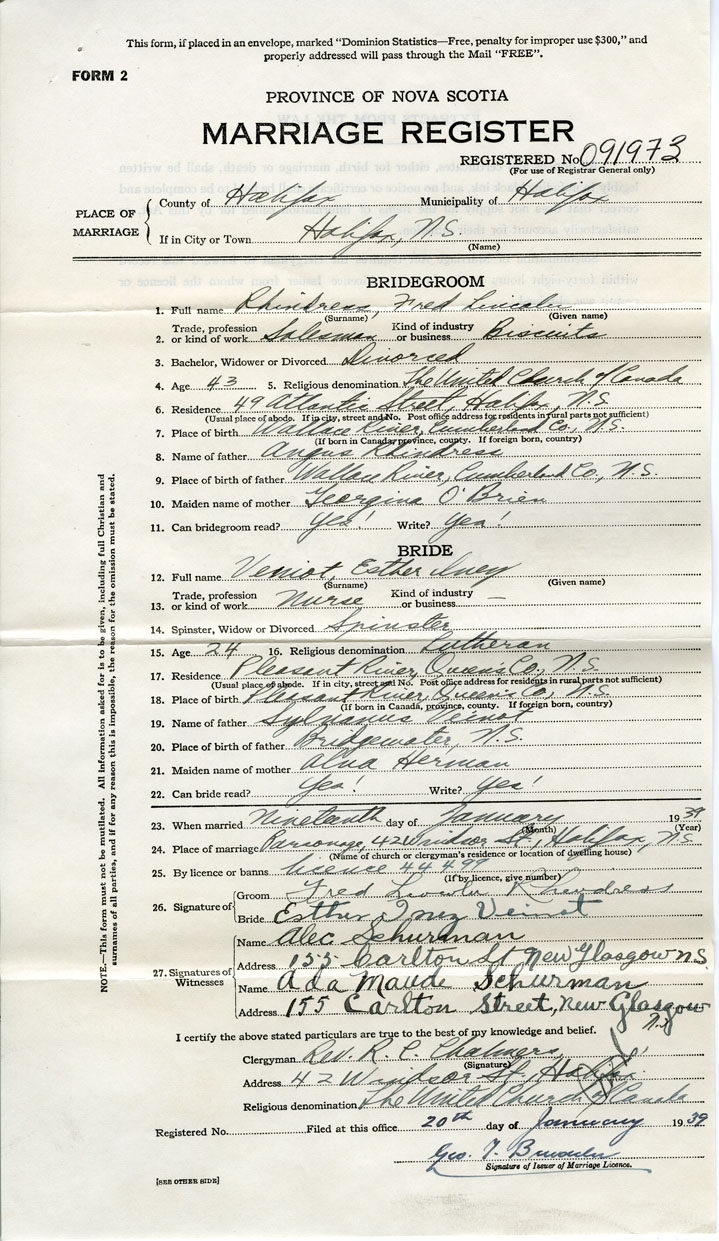 This form, if placed in an envelope, marked "Dominion Statistics—Free, penalty for improper use $300," and
properly addressed will pass through the Mail "FREE".
FORM 2
PROVINCE OF NOVA SCOTIA
MARRIAGE REGISTER
REGISTERED No. 091973
(For use of Registrar General only)
PLACE OF MARRIAGE
County of Halifax Municipality of Halifax
If in City or Town Halifax, N.S.
(Name)
BRIDEGROOM
1. Full name Rhindress, Fred Lincoln
(Surname) (Given name)
2. Trade, profession or kind of work Salesman Kind of industry or business Biscuits
3. Bachelor, Widower or Divorced Divorced
4. Age 43 5. Religious denomination The United Church of Canada
6. Residence 49 Atlantic Street, Halifax, N.S.
(Usual place of abode. If in city, street and No. Post office address for residents in rural parts not sufficient)
7. Place of birth Wallace River, Cumberland Co., N.S.
(If born in Canada, province, county. If foreign born, country)
8. Name of father Angus Rhindress
9. Place of birth of father Wallace River, Cumberland Co., N.S.
10. Maiden name of mother Georgina O'Brien
11. Can bridegroom read? Yes! Write? Yes!
BRIDE
12. Full name Veniot, Esther Iney
(Surname) (Given name)
13. Trade, profession or kind of work Nurse Kind of industry or business —
14. Spinster, Widow or Divorced Spinster
15. Age 24 16. Religious denomination Lutheran
17. Residence Pleasant River, Queen's Co., N.S.
(Usual place of abode. If in city, street and No. Post office address for residents in rural parts not sufficient)
18. Place of birth Pleasant River, Queen's Co., N.S.
(If born in Canada, province, county. If foreign born, country)
19. Name of father Sylvanus Veinot
20. Place of birth of father Bridgewater, N.S.
21. Maiden name of mother Alna Herman
22. Can bride read? Yes! Write? Yes!
23. When married Nineteenth day of January 1939
(Month) (Year)
24. Place of marriage Parsonage, 42 Windsor St., Halifax, N.S.
(Name of church or clergyman's residence or location of dwelling house)
25. By licence or banns licence 44497
(If by licence, give number)
26. Signature of
Groom Fred Lincoln Rhindress
Bride Esther Inez Veinot
27. Signatures of Witnesses
Name Alec Schurman
Address 155 Carlton St New Glasgow NS
Name Ada Maude Schurman
Address 155 Carlton Street, New Glasgow
N.S
I certify the above stated particulars are true to the best of my knowledge and belief.
Clergyman Rev. R. C. Chalmers
(Signature)
Address 42 Windsor St., Halifax
Religious denomination The United Church of Canada
Registered No. Filed at this office 20th day of January 1939
Geo. T.
Signature of Issuer of Marriage Licence.
[SEE OTHER SIDE]
NOTE.—This form must not be mutilated. All information asked for is to be given, including full Christian and
surnames of all parties, and if for any reason this is impossible, the reason for the omission must be stated.